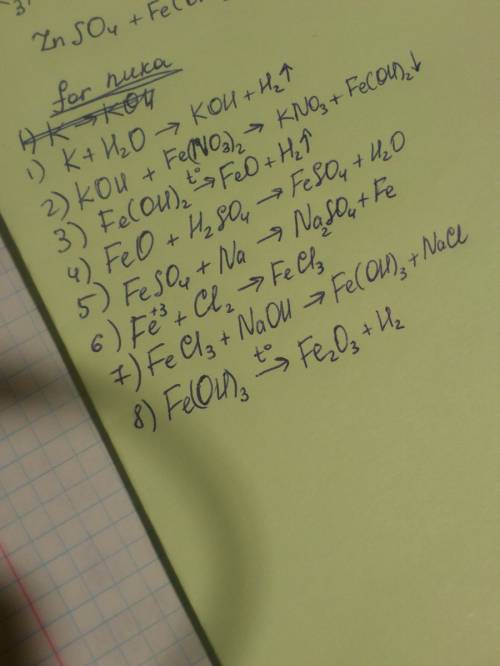 3)
ZnSO₄ + Fe(
for пика
1) K → KOH
1) K + H₂O → KOH + H₂↑
2) KOH + Fe(NO₃)₂ → KNO₃ + Fe(OH)₂↓
3) Fe(OH)₂ t°→ FeO + H₂↑
4) FeO + H₂SO₄ → FeSO₄ + H₂O
5) FeSO₄ + Na → Na₂SO₄ + Fe
6) Fe⁺³ + Cl₂ → FeCl₃
7) FeCl₃ + NaOH → Fe(OH)₃ + NaCl
8) Fe(OH)₃ t°→ Fe₂O₃ + H₂